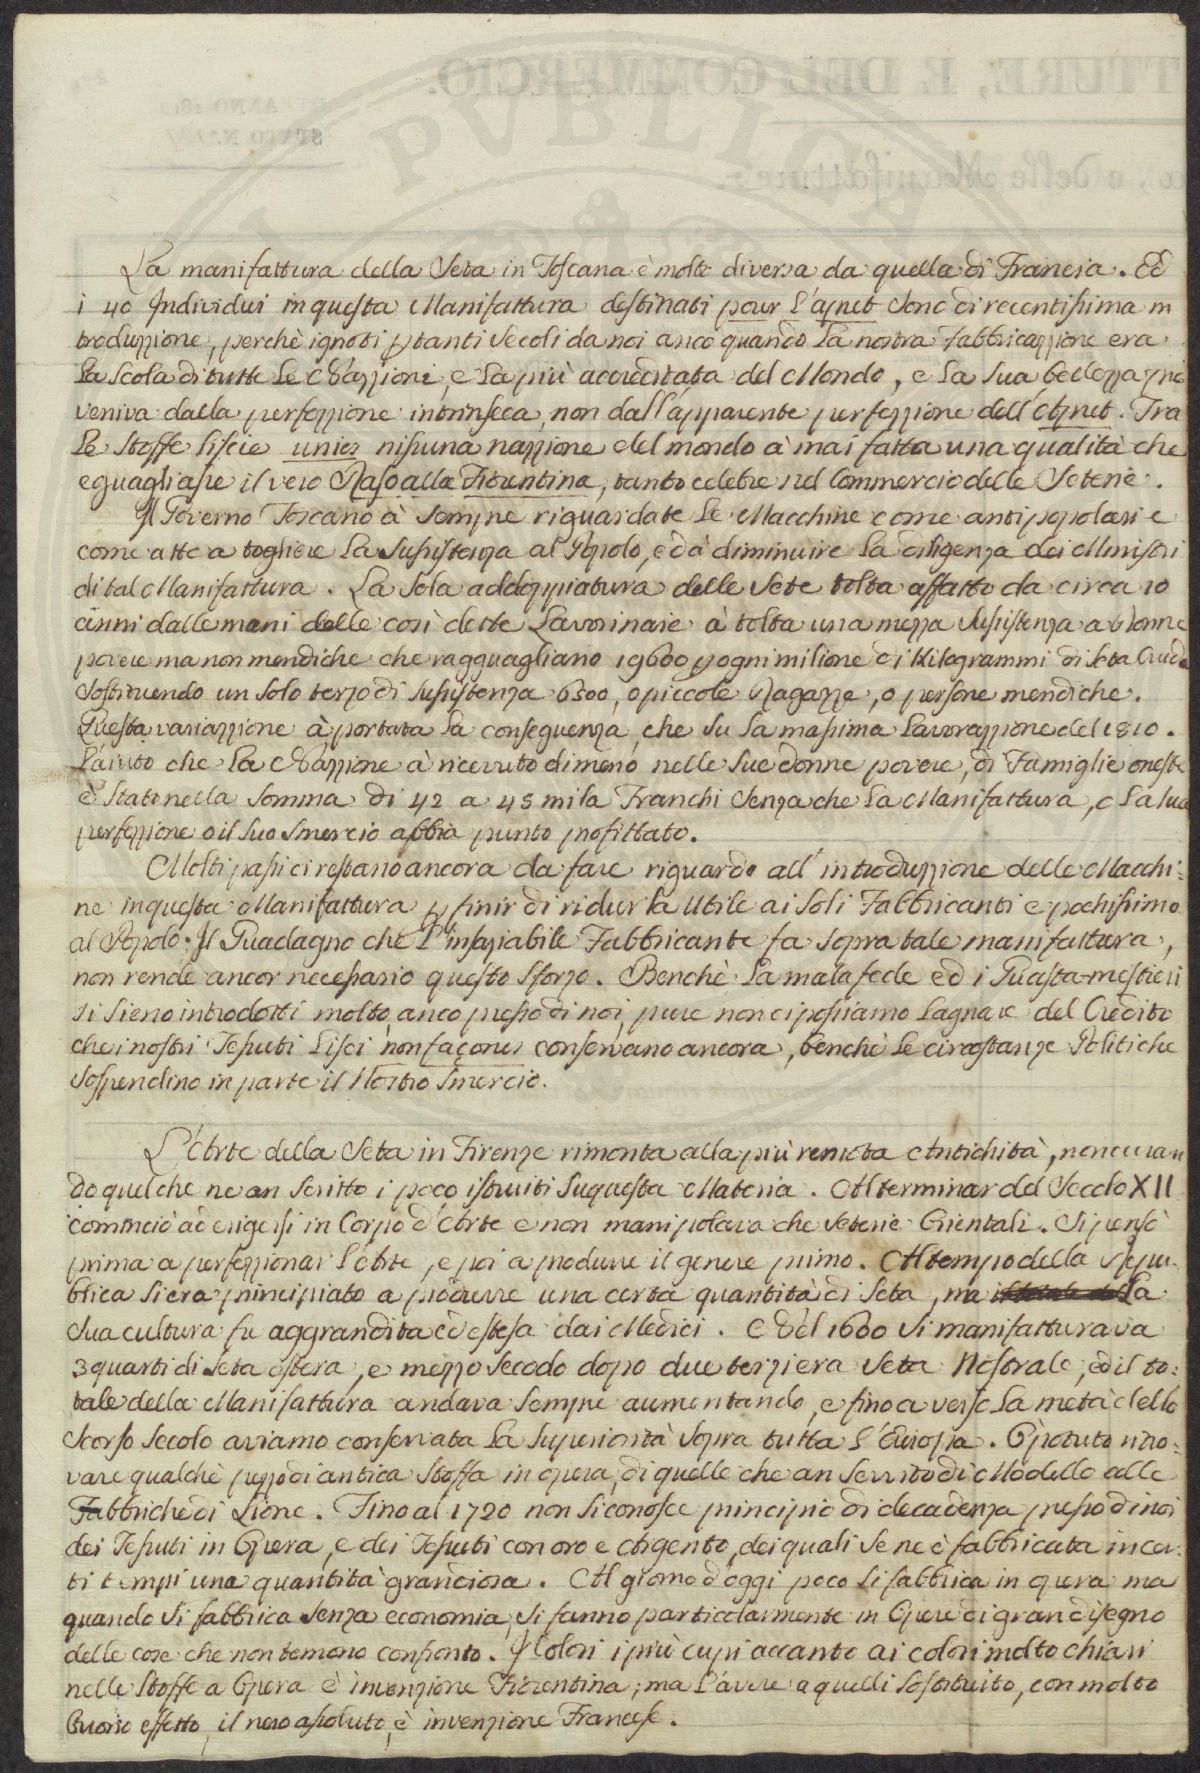 La manifattura della Seta in Toscana è molto diversa da quella di Francia. Ed
i 40 Individui in questa Manifattura destinati pour l'apret sono di recentissima in
troduzzione, perchè ignoti p tanti secoli da noi anco quando la nostra fabbricazzione era
la scola di tutte le Nazzioni, e la più accreditata del Mondo, e la sua bellezza pro
veniva dalla perfezzione intrinseca, non dall'apparente perfezzione dell'Apret. Tra
le Stoffe liscie unies nissuna nazzione del mondo à mai fatta una qualità che
eguagliasse il vero Raso alla Fiorentina, tanto celebre nel Commercio delle Seterie.
Il Governo Toscano à sempre riguardate le Macchine come antipopolari e
come atte a togliere la sussistenza al Popolo, ed a diminuire la diligenza dei Ministri
di tal Manifattura. La sola addoppiatura delle Sete tolta affatto da circa 10
anni dalle mani delle così dette Lavorinaie à tolta una mezza sussistenza a Donne
povere ma non mendiche che ragguagliano 19600 p ogni milione di Kilogrammi di Seta Cruda
sostituendo un solo terzo di sussistenza 6500, o piccole Ragazze, o persone mendiche.
Questa variazzione à portata la conseguenza, che su la massima lavorazzione del 1810.
l'aiuto che la Nazzione à ricevuto di meno nelle sue donne povere, di Famiglie oneste
è stato nella somma di 42 a 45 mila Franchi senza che la Manifattura, o la sua
perfezzione o il suo smercio abbia punto profittato.
Molti passi ci restano ancora da fare riguardo all'introduzzione delle Macchi=
ne in questa Manifattura p finir di ridurla utile ai soli Fabbricanti e pochissimo
al Popolo. Il Guadagno che l'insaziabile Fabbricante fa sopra tale manifattura,
non rende ancor necessario questo sforzo. Benchè la mala fede ed i Guasta-mestieri
si sieno introdotti molto, anco presso di noi, pure non ci possiamo lagnare del Credito
che i nostri Tessuti Lisci non façonés conservano ancora, benchè le circostanze Politiche
sospendino in parte il Nostro smercio.
L'Arte della Seta in Firenze rimonta alla più remota Antichità, non curan
do quel che ne an scritto i poco istruiti su questa Materia. Al terminar del Secolo XII
cominciò ad erigersi in Corpo d'Arte e non manipolava che Seterie Orientali. Si pensò
prima a perfezzionar l'Arte, e poi a produrre il genere primo. Al tempo della Repu=
blica si era principiato a produrre una certa quantità di Seta, ma la
sua cultura fu aggrandita ed estesa dai Medici. Nel 1600 si manifatturava
3 quarti di seta estera, e mezzo secolo dopo due terzi era Seta Nostrale, ed il to=
tale della Manifattura andava sempre aumentando, e fino a verso la metà dello
scorso secolo aviamo conservata la superiorità sopra tutta l'Europa. È potuto ritro=
vare qualche pezzo di antica Stoffa in opera, di quelle che an servito di Modello alle
Fabbriche di Lione. Fino al 1720 non si conosce principio di decadenza presso di noi
dei Tessuti in Opera, e dei Tessuti con oro e Argento, dei quali se ne è fabbricata in cer=
ti tempi una quantità grandiosa. Al giorno d'oggi poco si fabbrica in opera ma
quando si fabbrica senza economia, si fanno particolarmente in Opere di gran disegno
delle cose che non temono confronto. I Colori i più cupi accanto ai colori molto chiari
nelle Stoffe a Opera è invenzione Fiorentina, ma l'avere a quelli sostituito, con molto
buono effetto, il nero assoluto, è invenzione Francese.